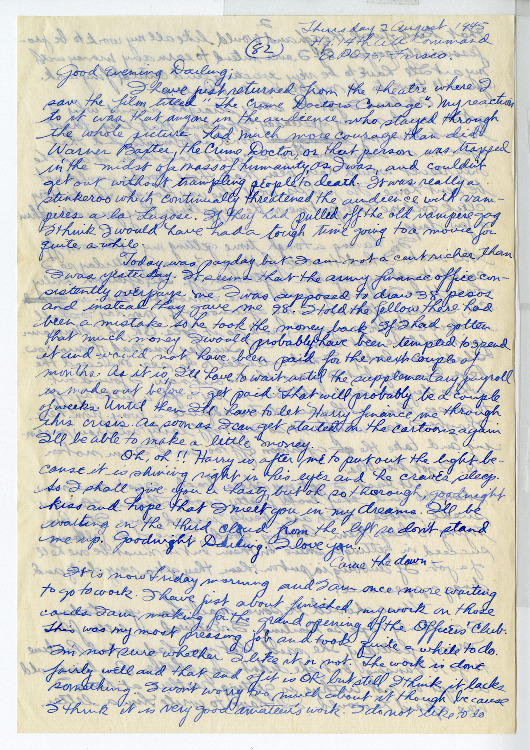 Thursday 2 August 1945
(82)
Hq. 14th AA Command
A.P.O. 75 - Frisco.
Good evening Darling;
I have just returned from the theatre where I
saw the film titled "The Crime Doctors Courage". My reaction
to it was that anyone in the audience who stayed through
the whole picture had much more courage than did
Warner Baxter the Crime Doctor, or that person was trapped
in the midst of a mass of humanity, as I was, and couldn't
get out without trampling people to death. It was really a
stinkeroo which continually threatened the audience with vam-
pires a la Lugose. If they had pulled off the old vampire-gag
I think I would have had a tough time going to a movie for
quite a while.
Today was payday but I am not a cent richer than
I was yesterday. It seems that the army finance office con-
sistently overpays me. I was supposed to draw 38 pesos
and instead they gave me 98. I told the fellow there had
been a mistake so he took the money back. If I had gotten
that much money I would probably have been tempted to spend
it and would not have been paid for the next couple of
months. As it is I'll have to wait until the supplementary payroll
is made out before I get paid. That will probably be a couple
of weeks. Until then I'll have to let Harry finance me through
this crisis. As soon as I can get started on the cartoons again
I'll be able to make a little money.
Oh, oh!! Harry is after me to put out the light be-
cause it is shining right in his eyes and he craves sleep.
So I shall give you a hasty, but oh so thorough, goodnight
kiss and hope that I meet you in my dreams. I'll be
waiting on the third cloud from the left so don't stand
me up. Goodnight Darling. I love you.
Came the dawn -
It is now Friday morning and I am once more waiting
to go to work. I have just about finished my work on those
cards I am making for the grand opening of the Officers' Club.
This was my most pressing job and took quite a while to do.
I'm not sure whether I like it or not. The work is done
fairly well and that end of it is OK but still I think it lacks
something. I won't worry too much about it though because
I think it is very good amateur's work. I do not like to do